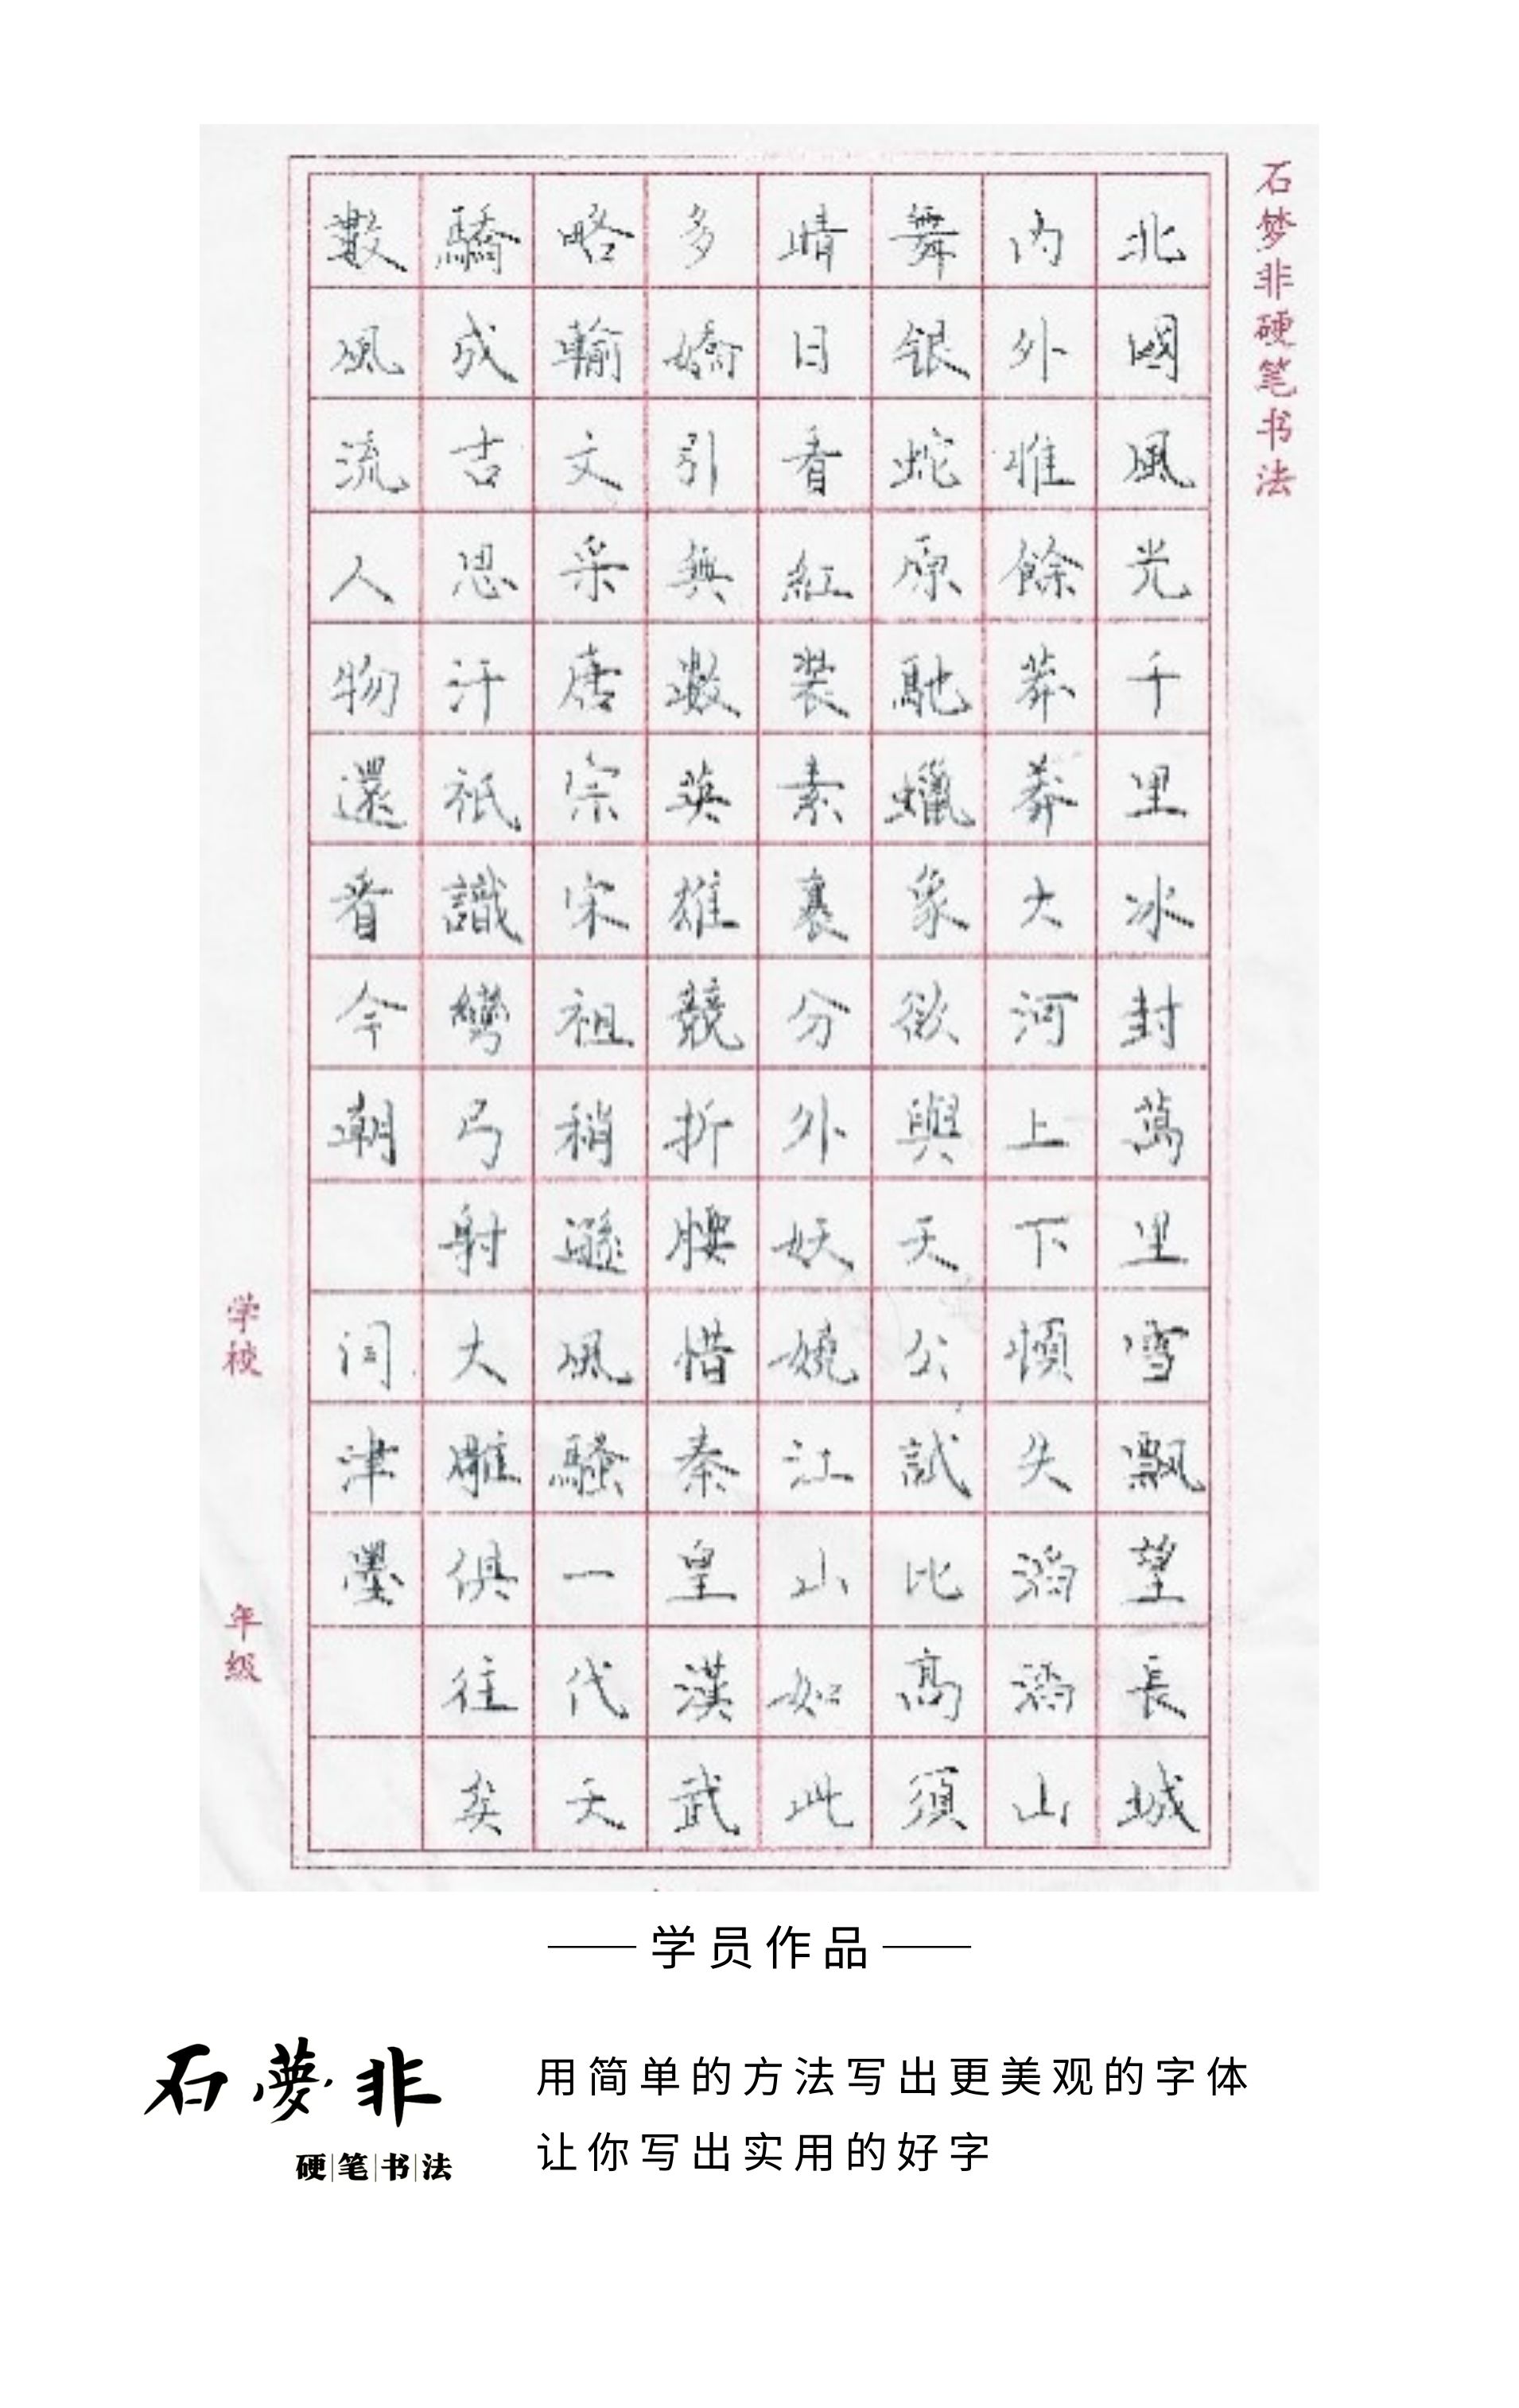 石梦非硬笔书法
北國風光千里冰封萬里雪飄望長城
内外惟餘莽莽大河上下頓失滔滔山
舞银蛇原馳蠟象欲與天公試比高須
晴日看紅装素裹分外妖嬈江山如此
多嬌引無數英雄競折腰惜秦皇漢武
略輸文采唐宗宋祖稍遜風騷一代天
驕成吉思汗祇識彎弓射大雕俱往矣
數風流人物還看今朝 闫津墨
学校 年级
学员作品
石夢非
硬笔书法
用简单的方法写出更美观的字体
让你写出实用的好字